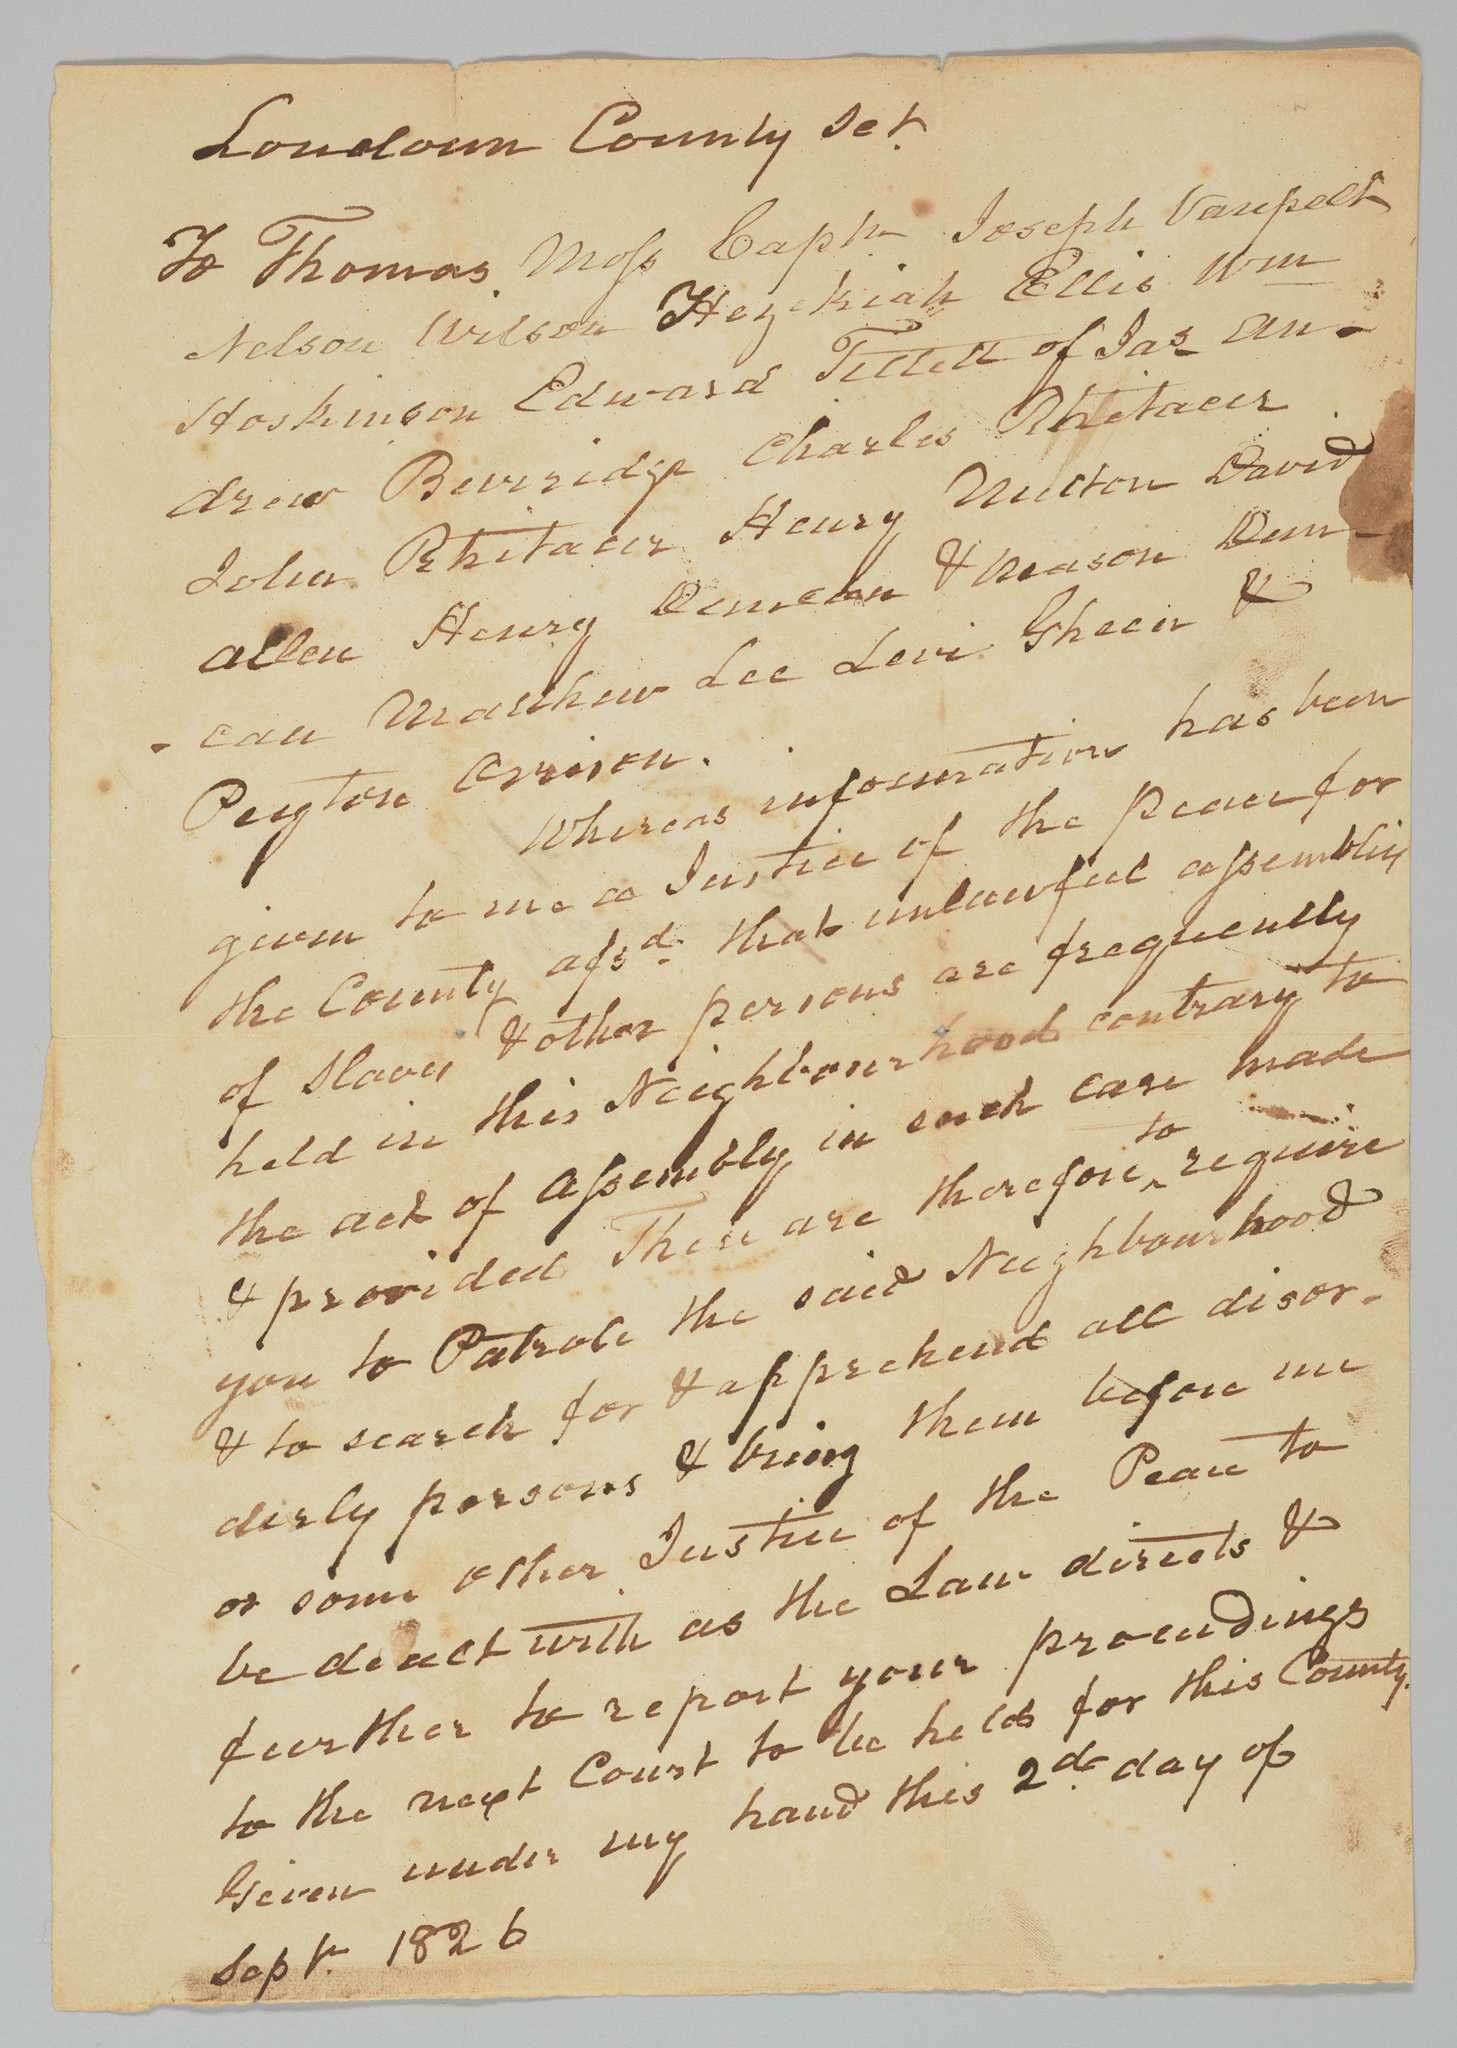 Loudoun County Sct.
To Thomas Moss Capt. Joseph Vanpelt
Nelson Wilson Hezekiah Ellis Wm
Hoskinson Edward Tillett of Jas An-
drew Beveridge Charles Rhitacer
John Rhitacer Henry Nutton David
Allen Henry Duncan & Mason Dun-
-can Matthew Lee Levi Gheen &
Peyton Orrison.
Whereas information has been
given to me a Justice of the peace for
the County afsd. that unlawful assemblies
of slaves & other persons are frequently
held in this Neighbourhood contrary to
the act of Assembly in such case made
& provided These are therefore to require
you to Patrole the said Neighbourhood
& to search for & apprehend all disor-
derly persons & bring them before me
or some other Justice of the Peace to
be dealt with as the Law directs &
further to report your proceedings
to the next Court to be held for this County.
Given under my hand this 2d. day of
Sept. 1826